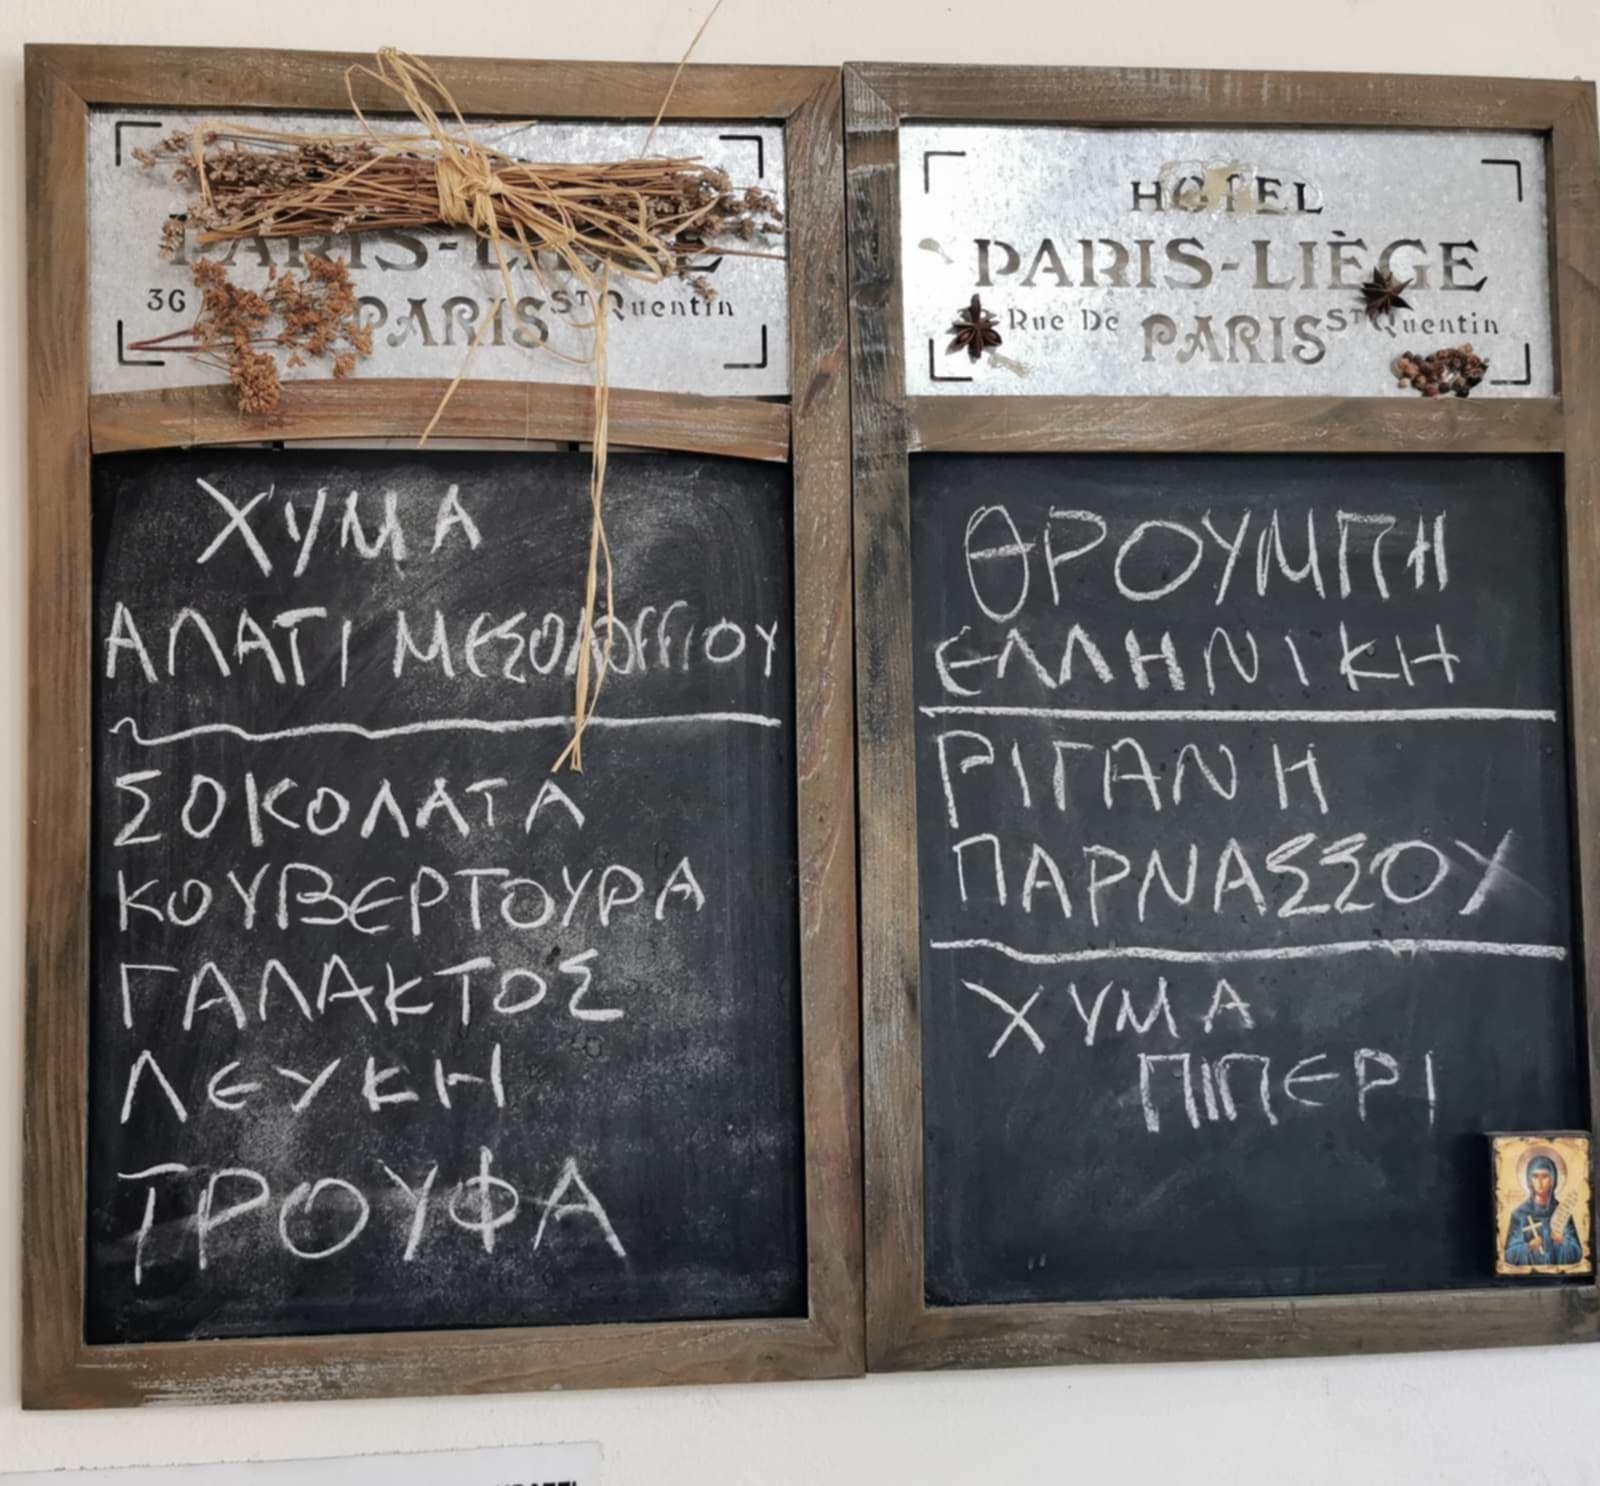 PARIS-LIÈGE
36 PARIS ST Quentin
ΧΥΜΑ
ΑΛΑΤΙ ΜΕΣΟΛΟΓΓΙΟΥ
ΣΟΚΟΛΑΤΑ
ΚΟΥΒΕΡΤΟΥΡΑ
ΓΑΛΑΚΤΟΣ
ΛΕΥΚΗ
ΤΡΟΥΦΑ
HOTEL
PARIS-LIÈGE
Rue De PARIS ST Quentin
ΘΡΟΥΜΠΗ
ΕΛΛΗΝΙΚΗ
ΡΙΓΑΝΗ
ΠΑΡΝΑΣΣΟΥ
ΧΥΜΑ
ΠΙΠΕΡΙ